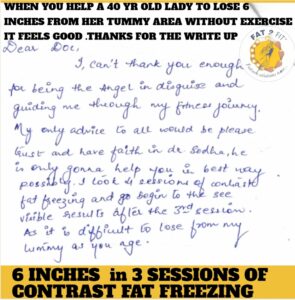 WHEN YOU HELP A 40 YR OLD LADY TO LOSE 6
INCHES FROM HER TUMMY AREA WITHOUT EXERCISE
IT FEELS GOOD .THANKS FOR THE WRITE UP
FAT 2 FIT
Dear Doc,
I can't thank you enough
for being the Angel in disguise and
guiding me through my fitness journey.
My only advice to all would be please
trust and have faith in dr Sodha, he
is only gonna help you in best way
possible. I took 4 sessions of contrast
fat freezing and go begin to the see
visible results after the 3rd session.
As it is difficult to lose from my
tummy as you age.
6 INCHES in 3 SESSIONS OF
CONTRAST FAT FREEZING